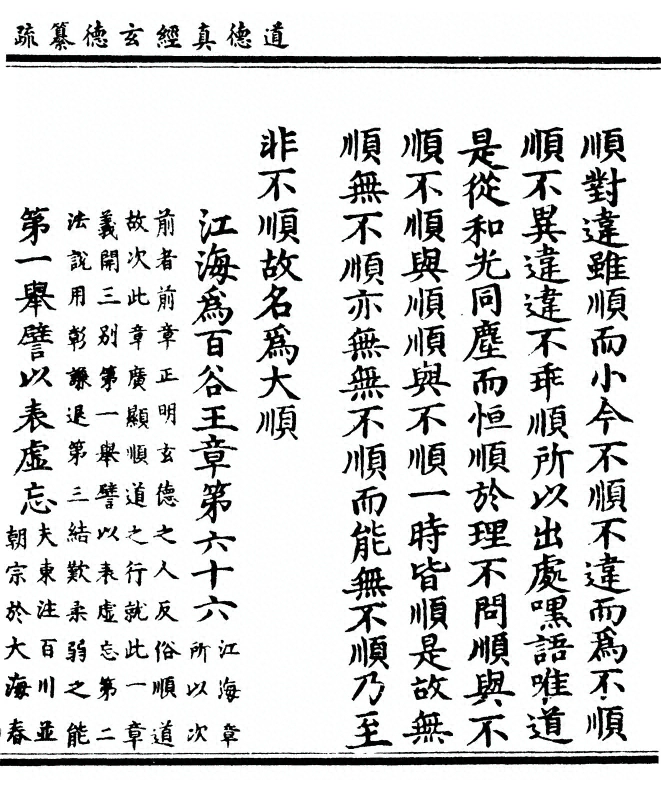 道德真經玄德纂疏
順對違雖順而小今不順不違而爲不順
順不異違違不乖順所以出處嘿語唯道
是從和光同塵而恒順於理不問順與不
順不順與順順與不順一時皆順是故無
順無不順亦無無不順而能無不順乃至
非不順故名爲大順
江海爲百谷王章第六十六
江海章
所以次
前者前章正明玄德之人反俗順道
故次此章廣顯順道之行就此一章
義開三別第一舉譬以表虛忘第二
法說用彰謙退第三結歎柔弱之能
第一舉譬以表虛忘
夫東注百川並
朝宗於大海春